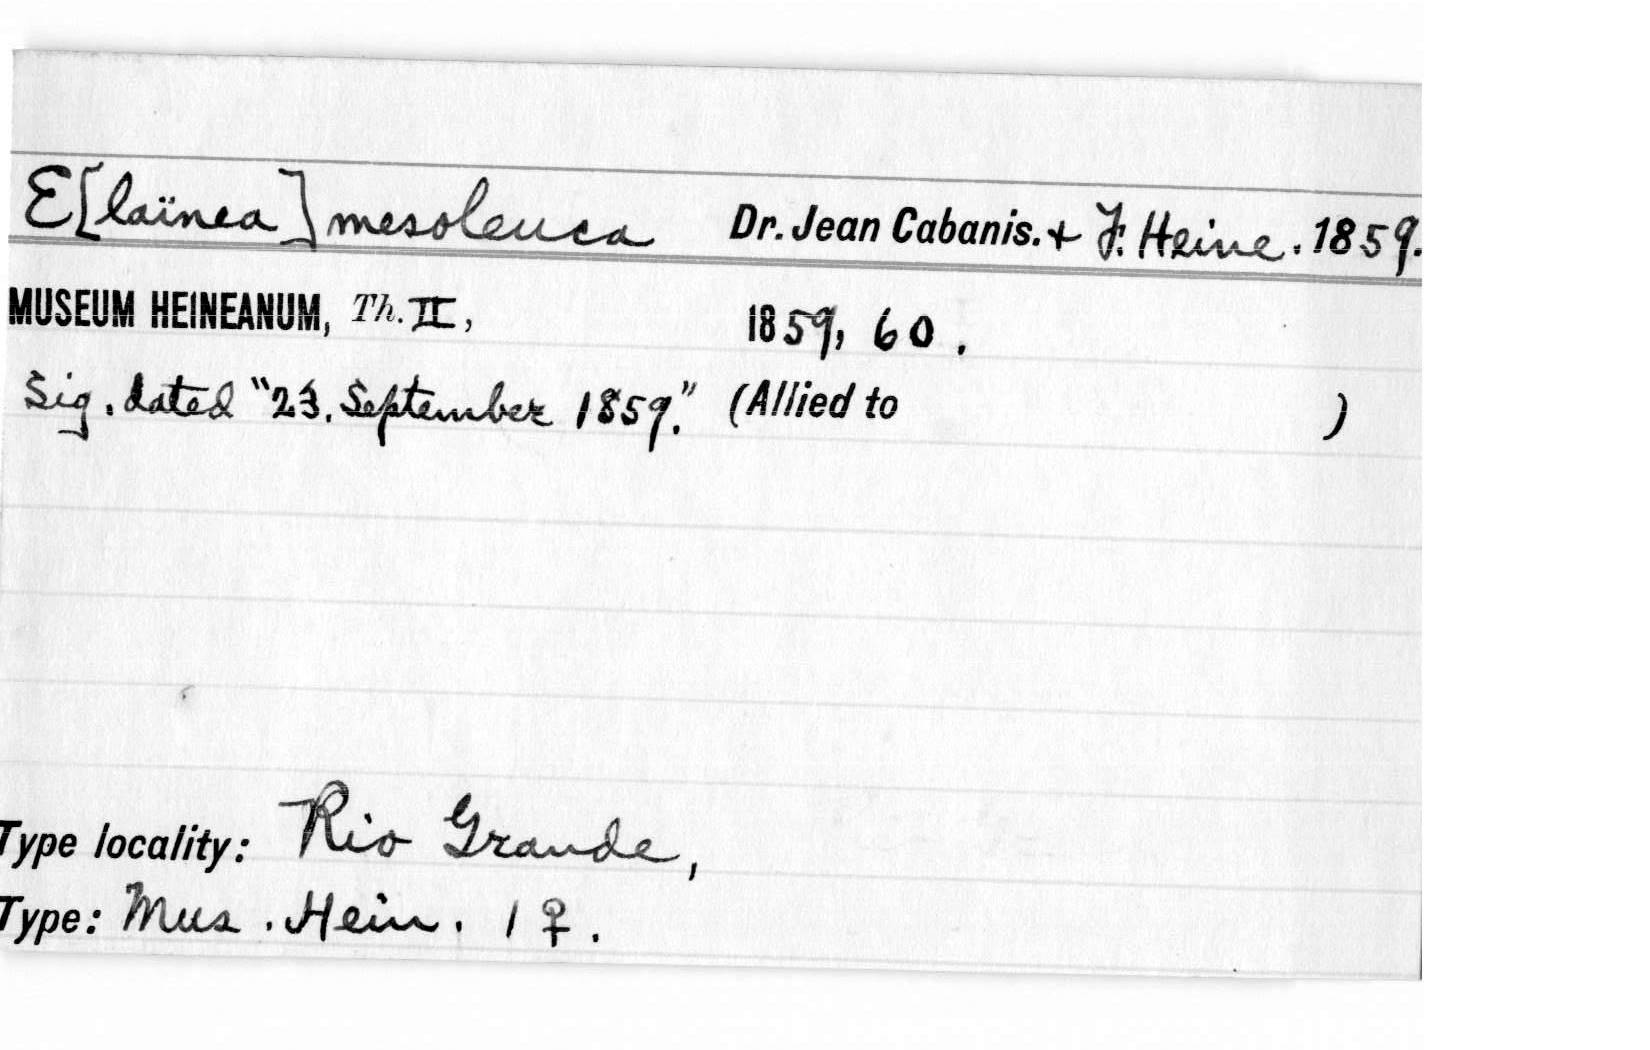 E[laïnea] mesoleuca Dr. Jean Cabanis. + F. Heine. 1859.
MUSEUM HEINEANUM, Th. II, 1859, 60.
Sig. dated "23. September 1859." (Allied to )
Type locality: Rio Grande,
Type: Mus. Hein. 1 ♀.